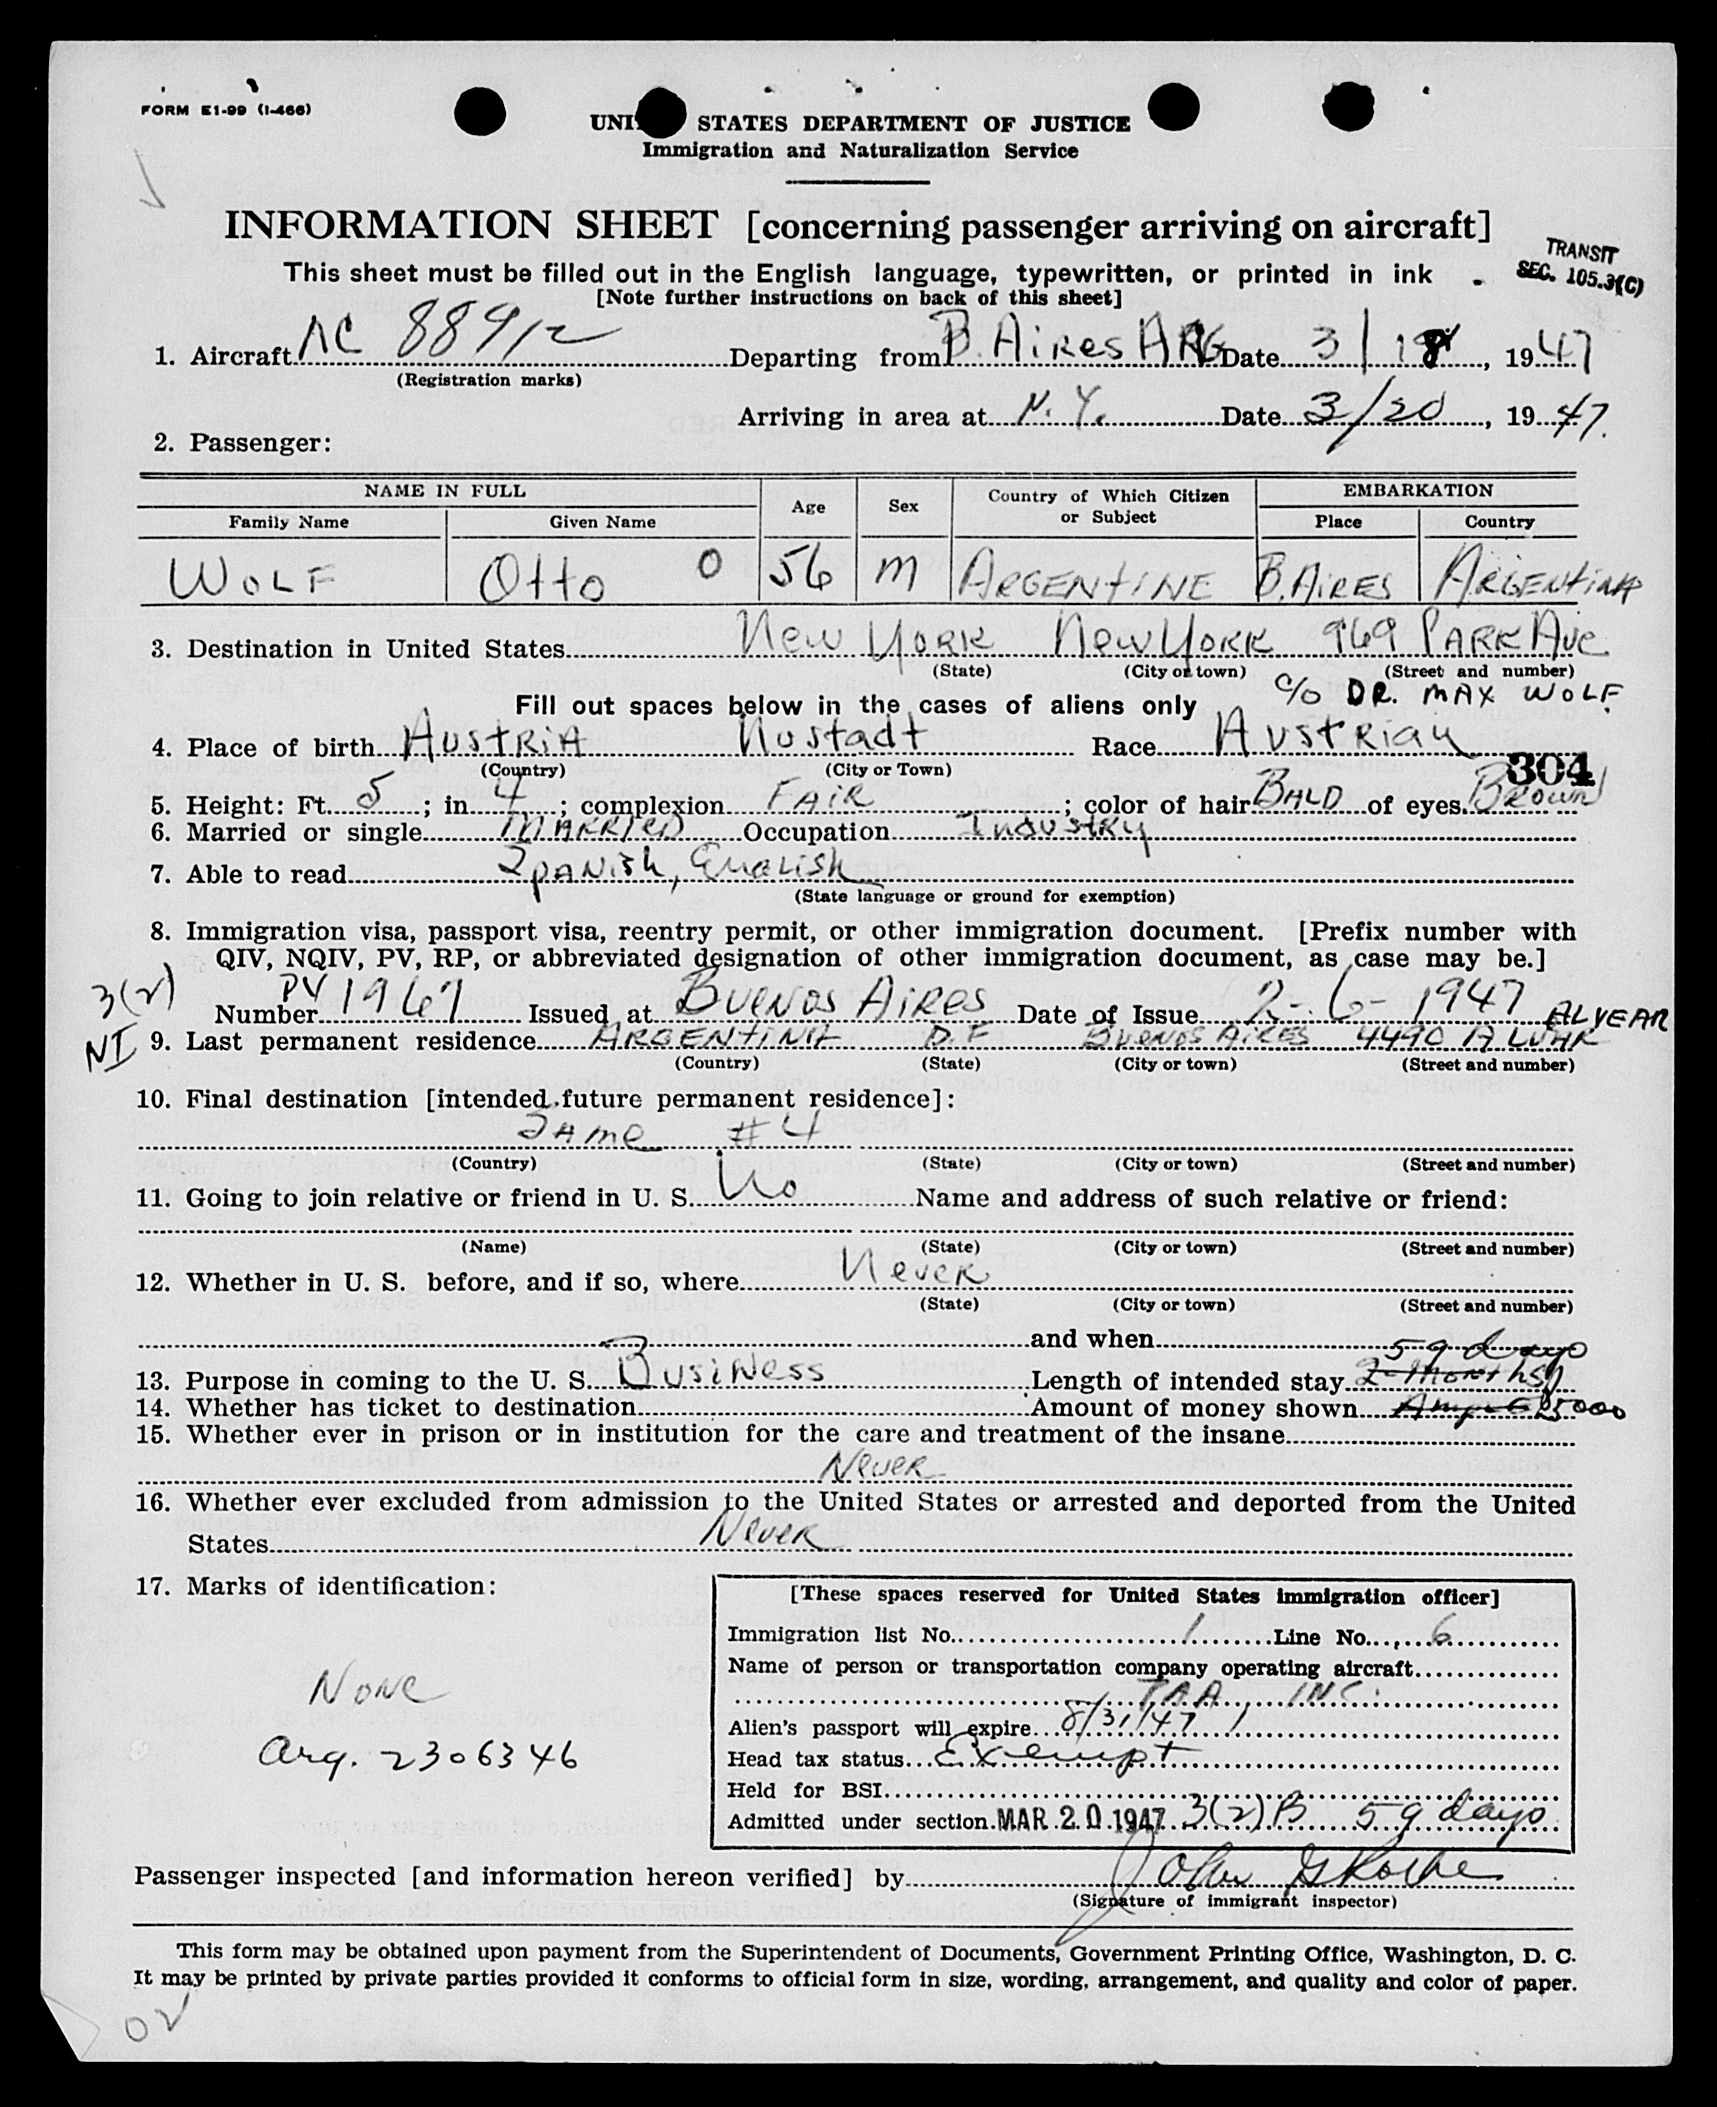 FORM E1-99 (I-466)
UNI STATES DEPARTMENT OF JUSTICE
Immigration and Naturalization Service
INFORMATION SHEET [concerning passenger arriving on aircraft]
TRANSIT
SEC. 105.3(C)
This sheet must be filled out in the English language, typewritten, or printed in ink
[Note further instructions on back of this sheet]
1. Aircraft NC 88912 Departing from B. AiRes ARG Date 3/18, 1947
(Registration marks)
Arriving in area at N.Y. Date 3/20, 1947.
2. Passenger:
NAME IN FULL Age Sex Country of Which Citizen or Subject EMBARKATION
Family Name Given Name Place Country
WOLF Otto O 56 M ARGENTINE B. AiRES ARGENTINA
3. Destination in United States New York New York 969 PARK Ave
(State) (City or town) (Street and number)
c/o DR. MAX WOLF
Fill out spaces below in the cases of aliens only
4. Place of birth AUSTRIA Nustadt Race AUSTRIAN
(Country) (City or Town)
304
5. Height: Ft. 5; in. 4; complexion FAIR; color of hair BALD of eyes BROWN
6. Married or single MARRIED Occupation Industry
7. Able to read SPANish, ENGLISH
(State language or ground for exemption)
8. Immigration visa, passport visa, reentry permit, or other immigration document. [Prefix number with
QIV, NQIV, PV, RP, or abbreviated designation of other immigration document, as case may be.]
3(2) Number PV 1967 Issued at BUENOS AiRES Date of Issue 2-6-1947
ALVEAR
NI 9. Last permanent residence ARGENTINA D.F BUENOS AIRES 4490
(Country) (State) (City or town) (Street and number)
10. Final destination [intended future permanent residence]:
SAME #4
(Country) (State) (City or town) (Street and number)
11. Going to join relative or friend in U. S. No Name and address of such relative or friend:
(Name) (State) (City or town) (Street and number)
12. Whether in U. S. before, and if so, where Never
(State) (City or town) (Street and number)
and when
59 days
13. Purpose in coming to the U. S. Business Length of intended stay 2 months
14. Whether has ticket to destination Amount of money shown 5000
15. Whether ever in prison or in institution for the care and treatment of the insane
Never
16. Whether ever excluded from admission to the United States or arrested and deported from the United
States Never
17. Marks of identification:
None
Arg. 2306346
[These spaces reserved for United States immigration officer]
Immigration list No. 1 Line No. 6
Name of person or transportation company operating aircraft
INC.
Alien's passport will expire 8/31/47
Head tax status Exempt
Held for BSI
Admitted under section MAR 20 1947 3(2)B 59 days
Passenger inspected [and information hereon verified] by John
(Signature of immigrant inspector)
This form may be obtained upon payment from the Superintendent of Documents, Government Printing Office, Washington, D. C.
It may be printed by private parties provided it conforms to official form in size, wording, arrangement, and quality and color of paper.